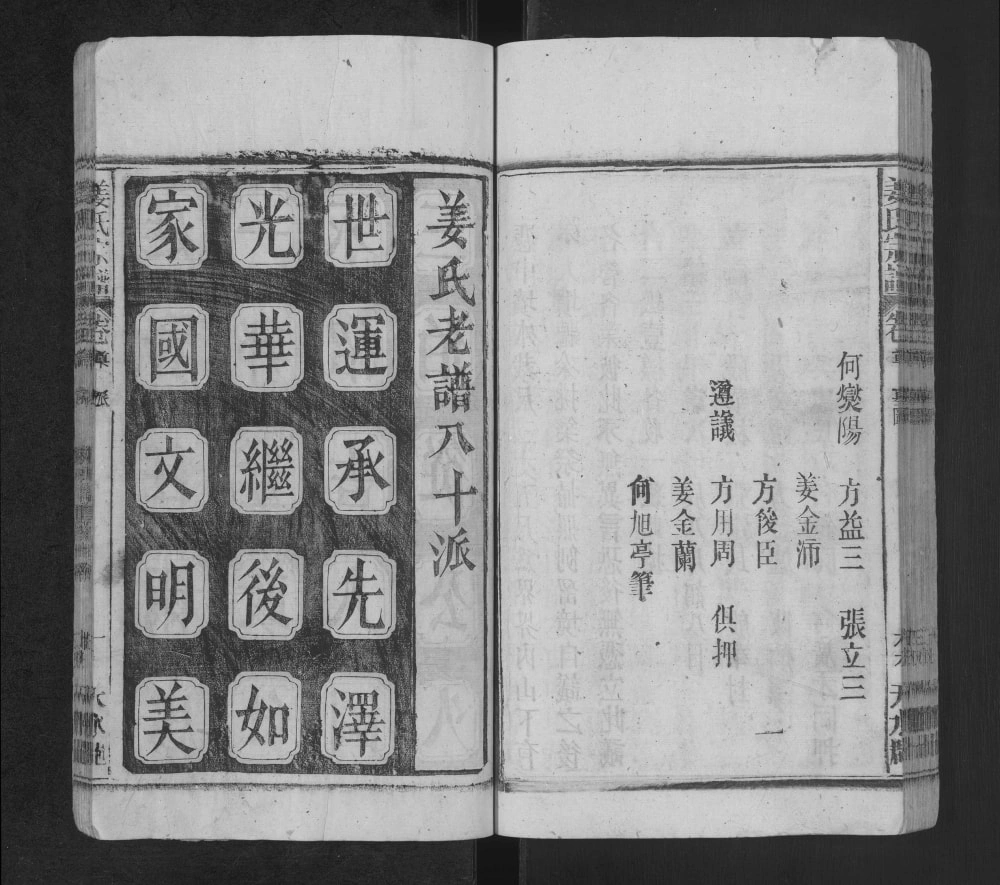 何燮陽 方益三 張立三
姜金沛
方俊臣
遵議 方用周 俱押
姜金蘭
何旭亭筆
姜氏老譜八十派
世運承先澤
光華繼後如
家國文明美
姜氏宗譜